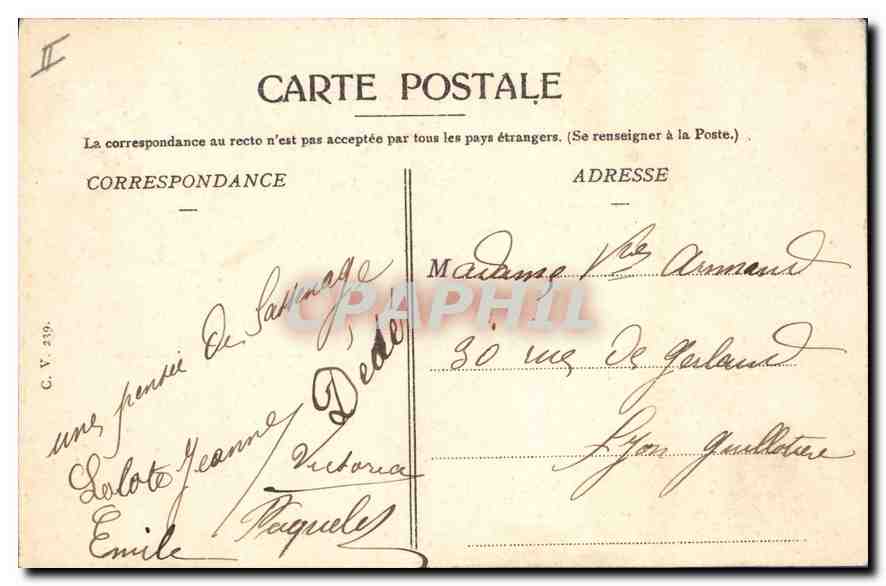 II
CARTE POSTALE
La correspondance au recto n'est pas acceptée par tous les pays étrangers. (Se renseigner à la Poste.)
CORRESPONDANCE
une pensée de Sassenage
Dédé
Lolote Jeanne
Victoria
Emile
C. V. 239.
ADRESSE
Madame Vve Armand
30 rue de Gerland
Lyon Guillotière
CPAPHIL